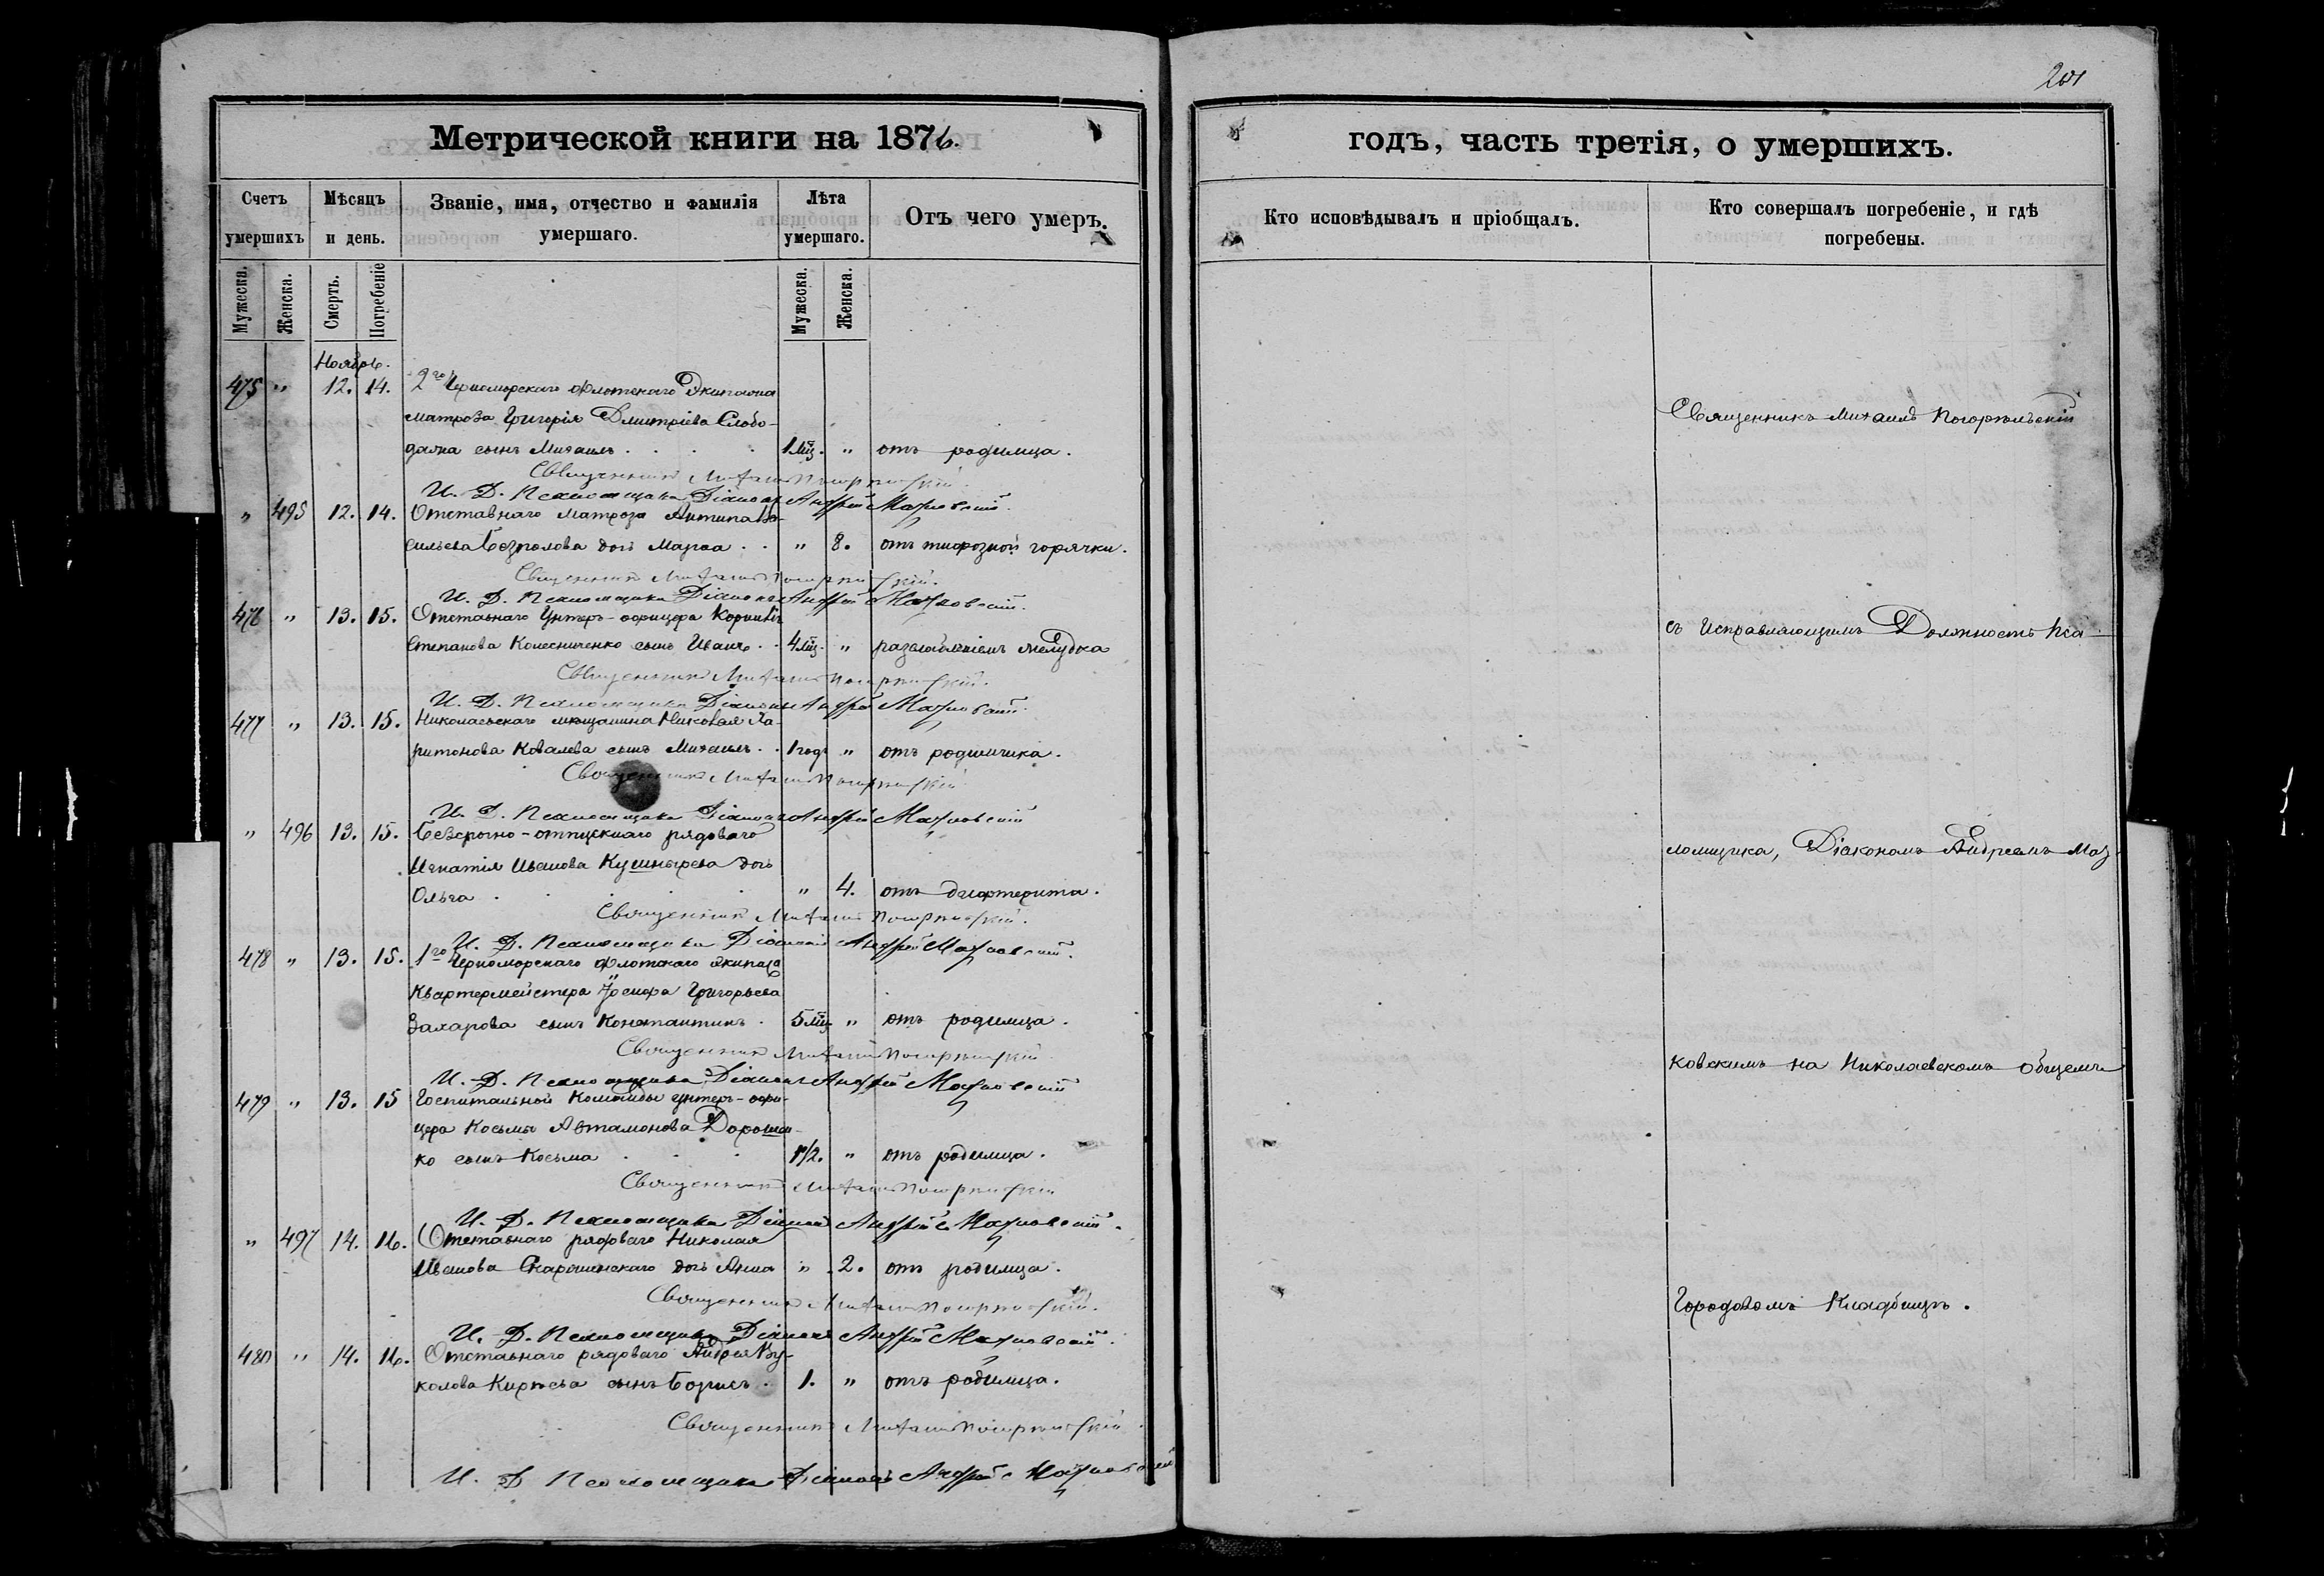 201
Метрической книги на 1876.
годъ, часть третія, о умершихъ.
Счетъ умершихъ
Мѣсяцъ и день.
Званіе, имя, отчество и фамилія умершаго.
Лѣта умершаго.
Отъ чего умеръ.
Кто исповѣдывалъ и пріобщалъ.
Кто совершалъ погребеніе, и гдѣ погребены.
Мужеска.
Женска.
Смерть.
Погребеніе
Мужеска.
Женска.
Ноябрь.
475 " 12. 14. 2го Черноморскаго флотскаго Экипажа
матроза Григорія Дмитріева Слобо-
дяна сынъ Михаилъ . . . 1 мц. " отъ родимца.
Священникъ Михаилъ Погорѣльскій
И. Д. Псаломщика Діаконъ Андрей Мазковскій
" 495 12. 14. Отставнаго матроза Антипа Ва-
сильева дочь Марѳа . . " 8. отъ тифозной горячки.
Священникъ Михаилъ Погорѣльскій.
И. Д. Псаломщика Діаконъ Андрей Мазковскій.
476 " 13. 15. Отставнаго Унтеръ-офицера
Степанова Колесниченко сынъ Иванъ . . 4 мц. " разслабленіемъ желудка
Священникъ Михаилъ Погорѣльскій.
И. Д. Псаломщика Діаконъ Андрей Мазковскій.
477 " 13. 15. Николаевскаго мѣщанина Николая Ха-
ритонова Ковалева сынъ Михаилъ . . 1 годъ " отъ родимчика.
Священникъ Михаилъ Погорѣльскій
И. Д. Псаломщика Діаконъ Андрей Мазковскій
" 496 13. 15. Безсрочно-отпускнаго рядоваго
Игнатія Иванова Кушнырева дочь
Ольга . . . " 4. отъ дифтерита.
Священникъ Михаилъ Погорѣльскій.
И. Д. Псаломщика Діаконъ Андрей Мазковскій.
478 " 13. 15. 1го Черноморскаго флотскаго экипажа
Квартермейстера Іосифа Григорьева
Захарова сынъ Константинъ . 5 мц " отъ родимца.
Священникъ Михаилъ Погорѣльскій
И. Д. Псаломщика Діаконъ Андрей Мазковскій
479 " 13. 15 Госпитальной Команды унтеръ-офи-
цера Косьмы Автамонова Дорошен-
ко сынъ Косьма . . . 1 1/2. " отъ родимца.
Священникъ Михаилъ Погорѣльскій
И. Д. Псаломщика Діаконъ Андрей Мазковскій.
" 497 14. 16. Отставнаго рядоваго Николая
Иванова дочь Анна " 2. отъ родимца.
Священникъ Михаилъ Погорѣльскій.
И. Д. Псаломщика Діаконъ Андрей Мазковскій.
480 " 14. 16. Отставнаго рядоваго Андрея Ву-
колова Кирѣева сынъ Борисъ . 1. " отъ родимца.
Священникъ Михаилъ Погорѣльскій
И. Д Псаломщика Діаконъ Андрей Мазковскій
Священникъ Михаилъ Погорѣльскій
съ Исправляющимъ Должность Пса-
ломщика, Діакономъ Андреемъ Маз-
ковскимъ на Николаевскомъ общемъ
Городовомъ Кладбищѣ.